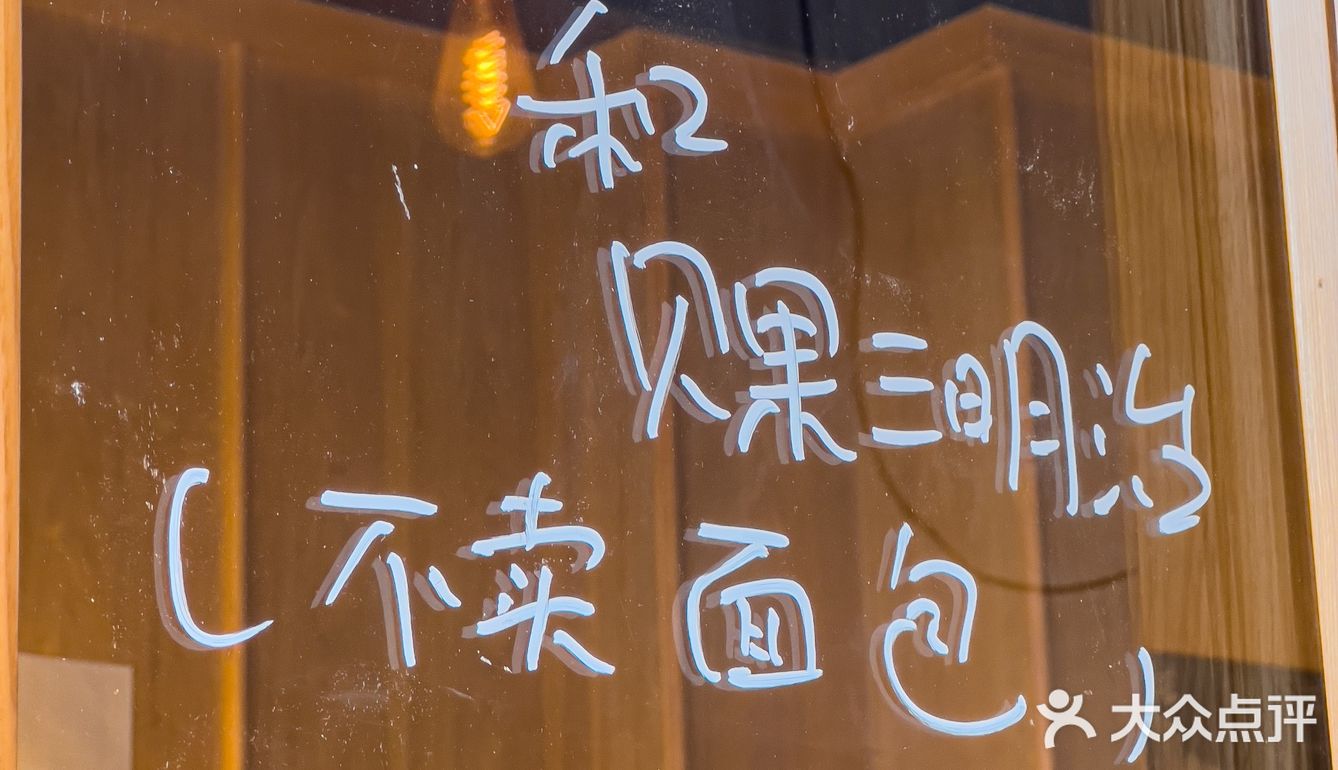 和
贝果三明治
(不卖面包)
大众点评